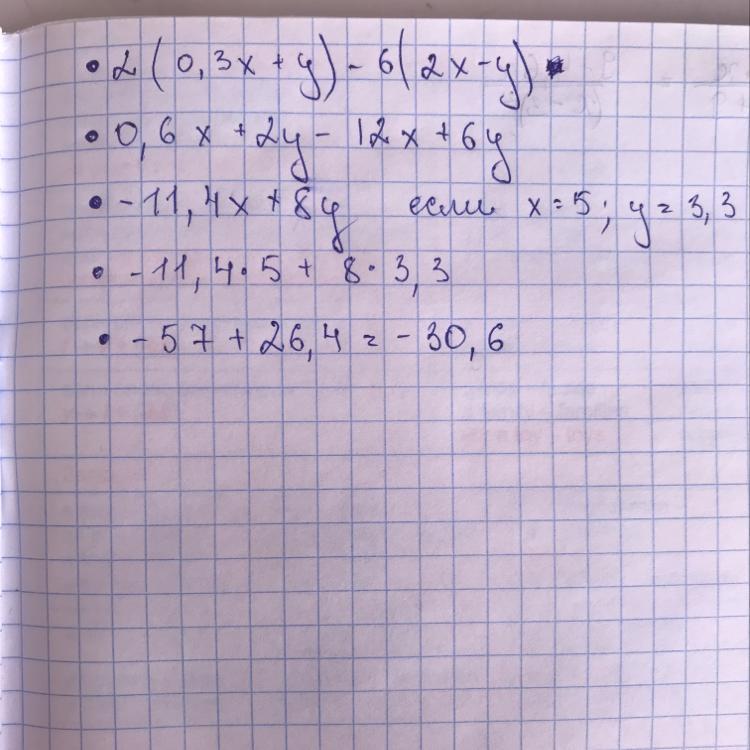 • 2(0,3x + y) - 6(2x - y)
• 0,6x + 2y - 12x + 6y
• -11,4x + 8y если x = 5; y = 3,3
• -11,4 · 5 + 8 · 3,3
• -57 + 26,4 = -30,6